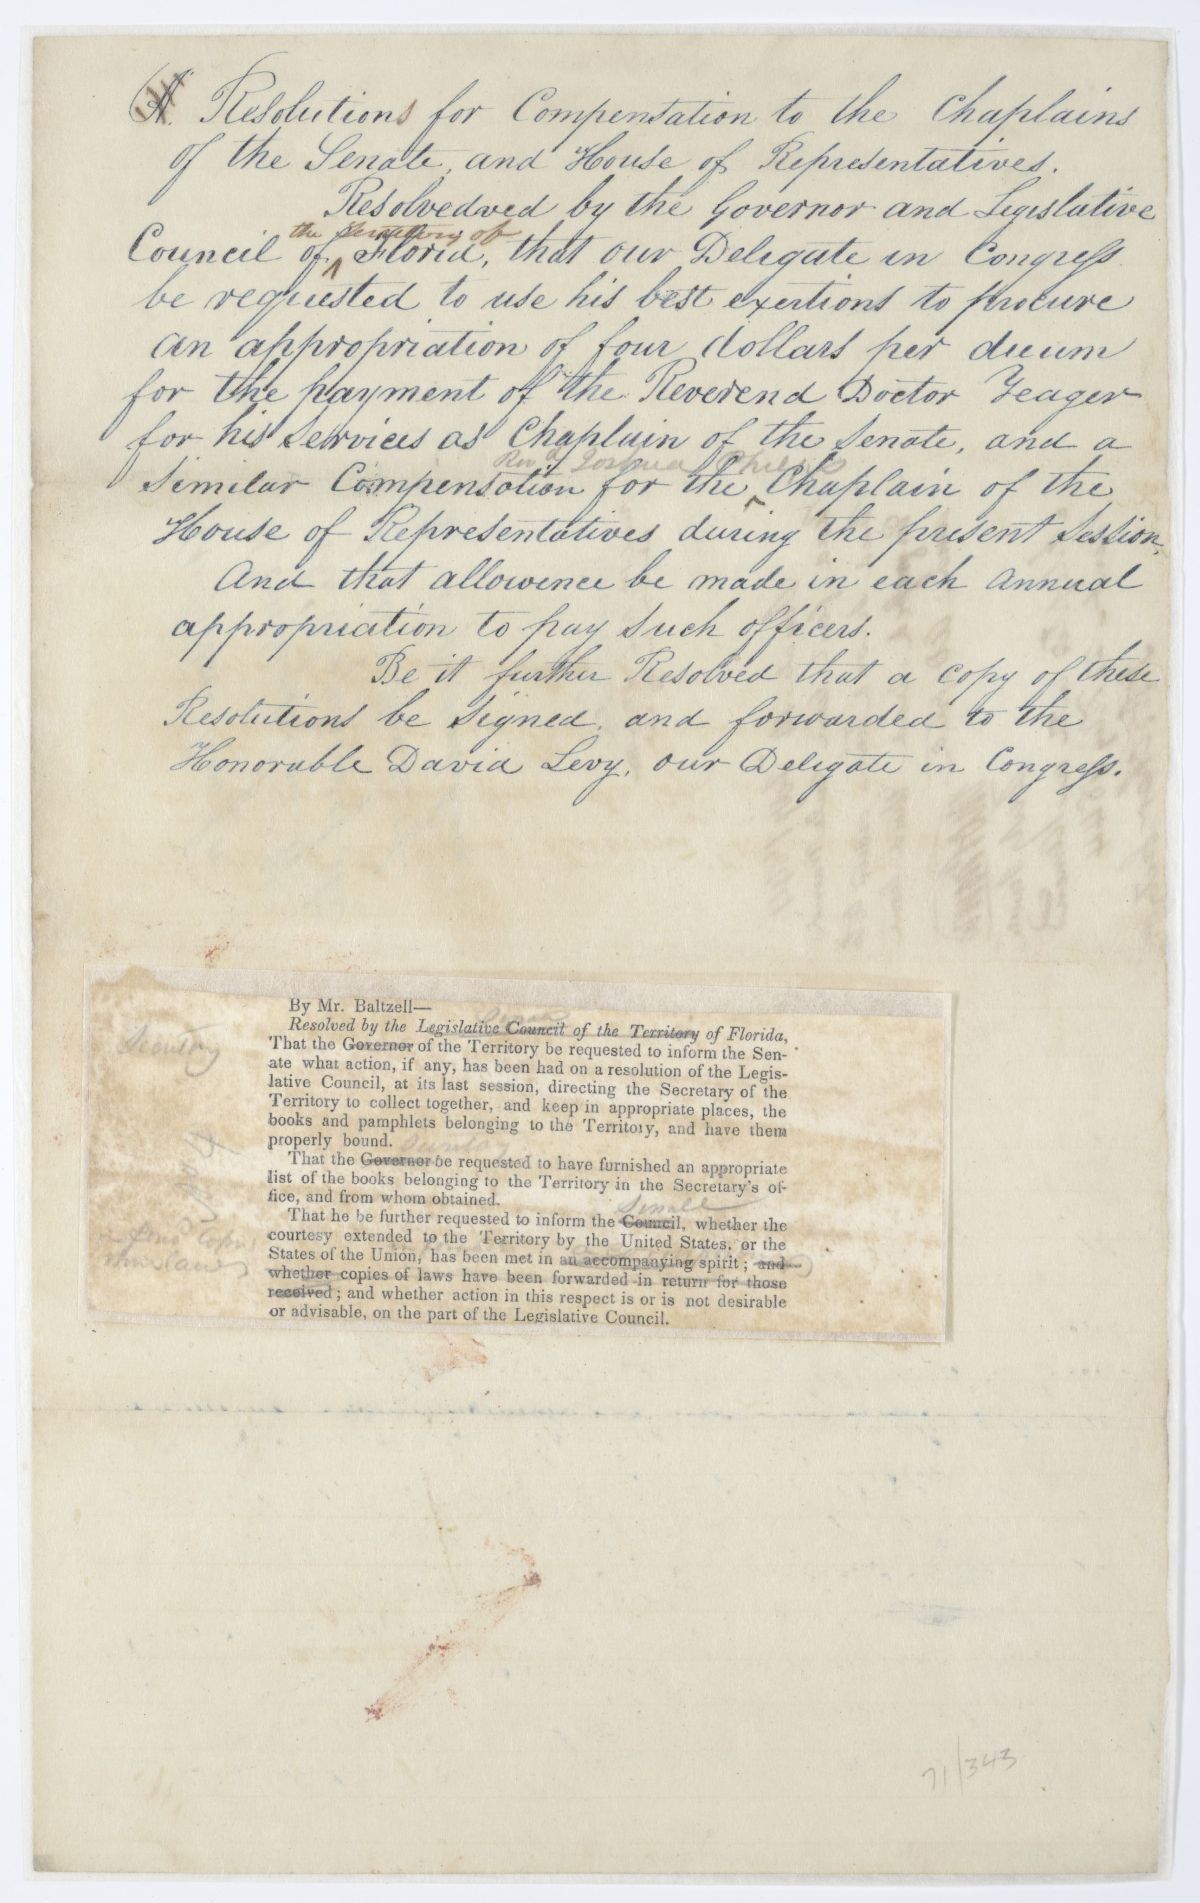 A. Resolutions for Compensation to the Chaplains
of the Senate, and House of Representatives.
Resolvedved by the Governor and Legislative
the Territory of
Council of Florid, that our Deligate in Congress
be requested to use his best exertions to procure
an appropriation of four dollars per dieum
for the payment of the Reverend Doctor Yeager
for his services as Chaplain of the Senate, and a
Revd Joshua Phelps
Similar Compensation for the Chaplain of the
House of Representatives during the present Session,
And that allowence be made in each annual
appropriation to pay such officers.
Be it further Resolved that a copy of these
Resolutions be signed, and forwarded to the
Honorable David Levy, our Deligate in Congress.
By Mr. Baltzell—
Senate
Resolved by the Legislative Council of the Territory of Florida,
Secretary
That the Governor of the Territory be requested to inform the Sen-
ate what action, if any, has been had on a resolution of the Legis-
lative Council, at its last session, directing the Secretary of the
Territory to collect together, and keep in appropriate places, the
books and pamphlets belonging to the Territory, and have them
properly bound.
That the Governor be requested to have furnished an appropriate
list of the books belonging to the Territory in the Secretary's of-
fice, and from whom obtained.
Senate
That he be further requested to inform the Council, whether the
courtesy extended to the Territory by the United States, or the
States of the Union, has been met in an accompanying spirit; and
whether copies of laws have been forwarded in return for those
received; and whether action in this respect is or is not desirable
or advisable, on the part of the Legislative Council.
71/343